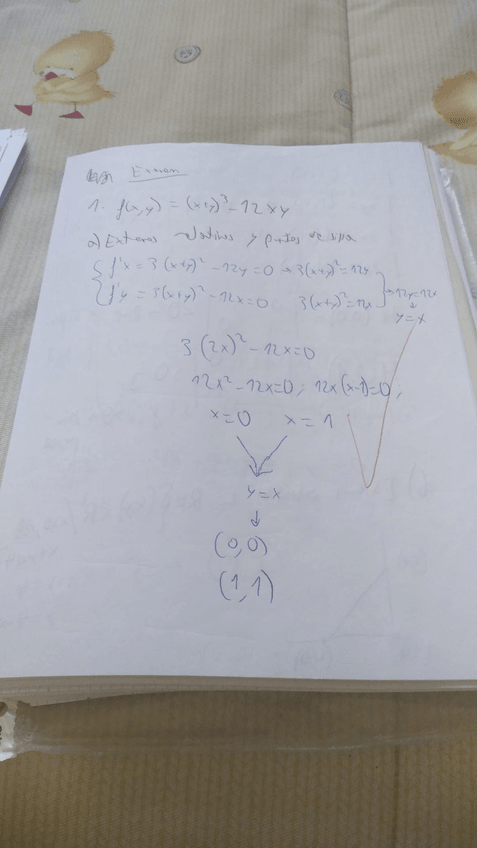 Examen
1. f(x,y) = (x+y)³ - 12xy
a) Extremos relativos y puntos de silla
{ f'x = 3(x+y)² - 12y = 0 → 3(x+y)² = 12y
{ f'y = 3(x+y)² - 12x = 0 3(x+y)² = 12x } → 12y = 12x
↓
y = x
3(2x)² - 12x = 0
12x² - 12x = 0; 12x(x-1) = 0;
x = 0 x = 1
y = x
↓
(0,0)
(1,1)